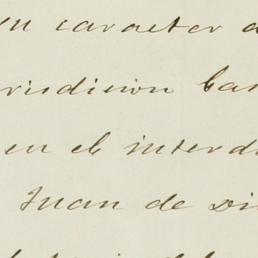 un caracter d
risdicion ba
en el interd
Juan de Di